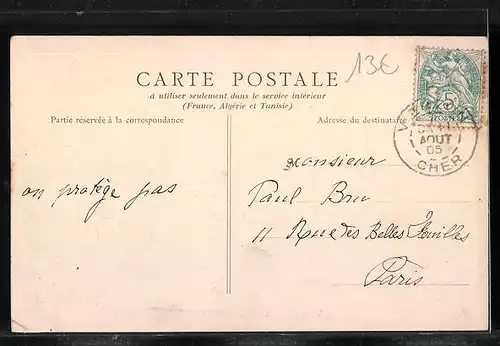 13€
CARTE POSTALE
à utiliser seulement dans le service intérieur
(France, Algérie et Tunisie)
Partie réservée à la correspondance
Adresse du destinataire
AOUT
05
CHER
Monsieur
on protège pas
Paul Bru
11 Rue des Belles Feuilles
Paris